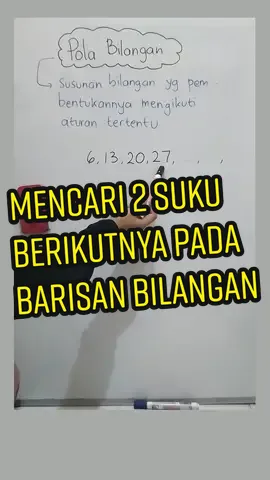 Pola Bilangan
Susunan bilangan yg pem-
bentukannya mengikuti
aturan tertentu
6, 13, 20, 27, . , . ,
MENCARI 2 SUKU
BERIKUTNYA PADA
BARISAN BILANGAN